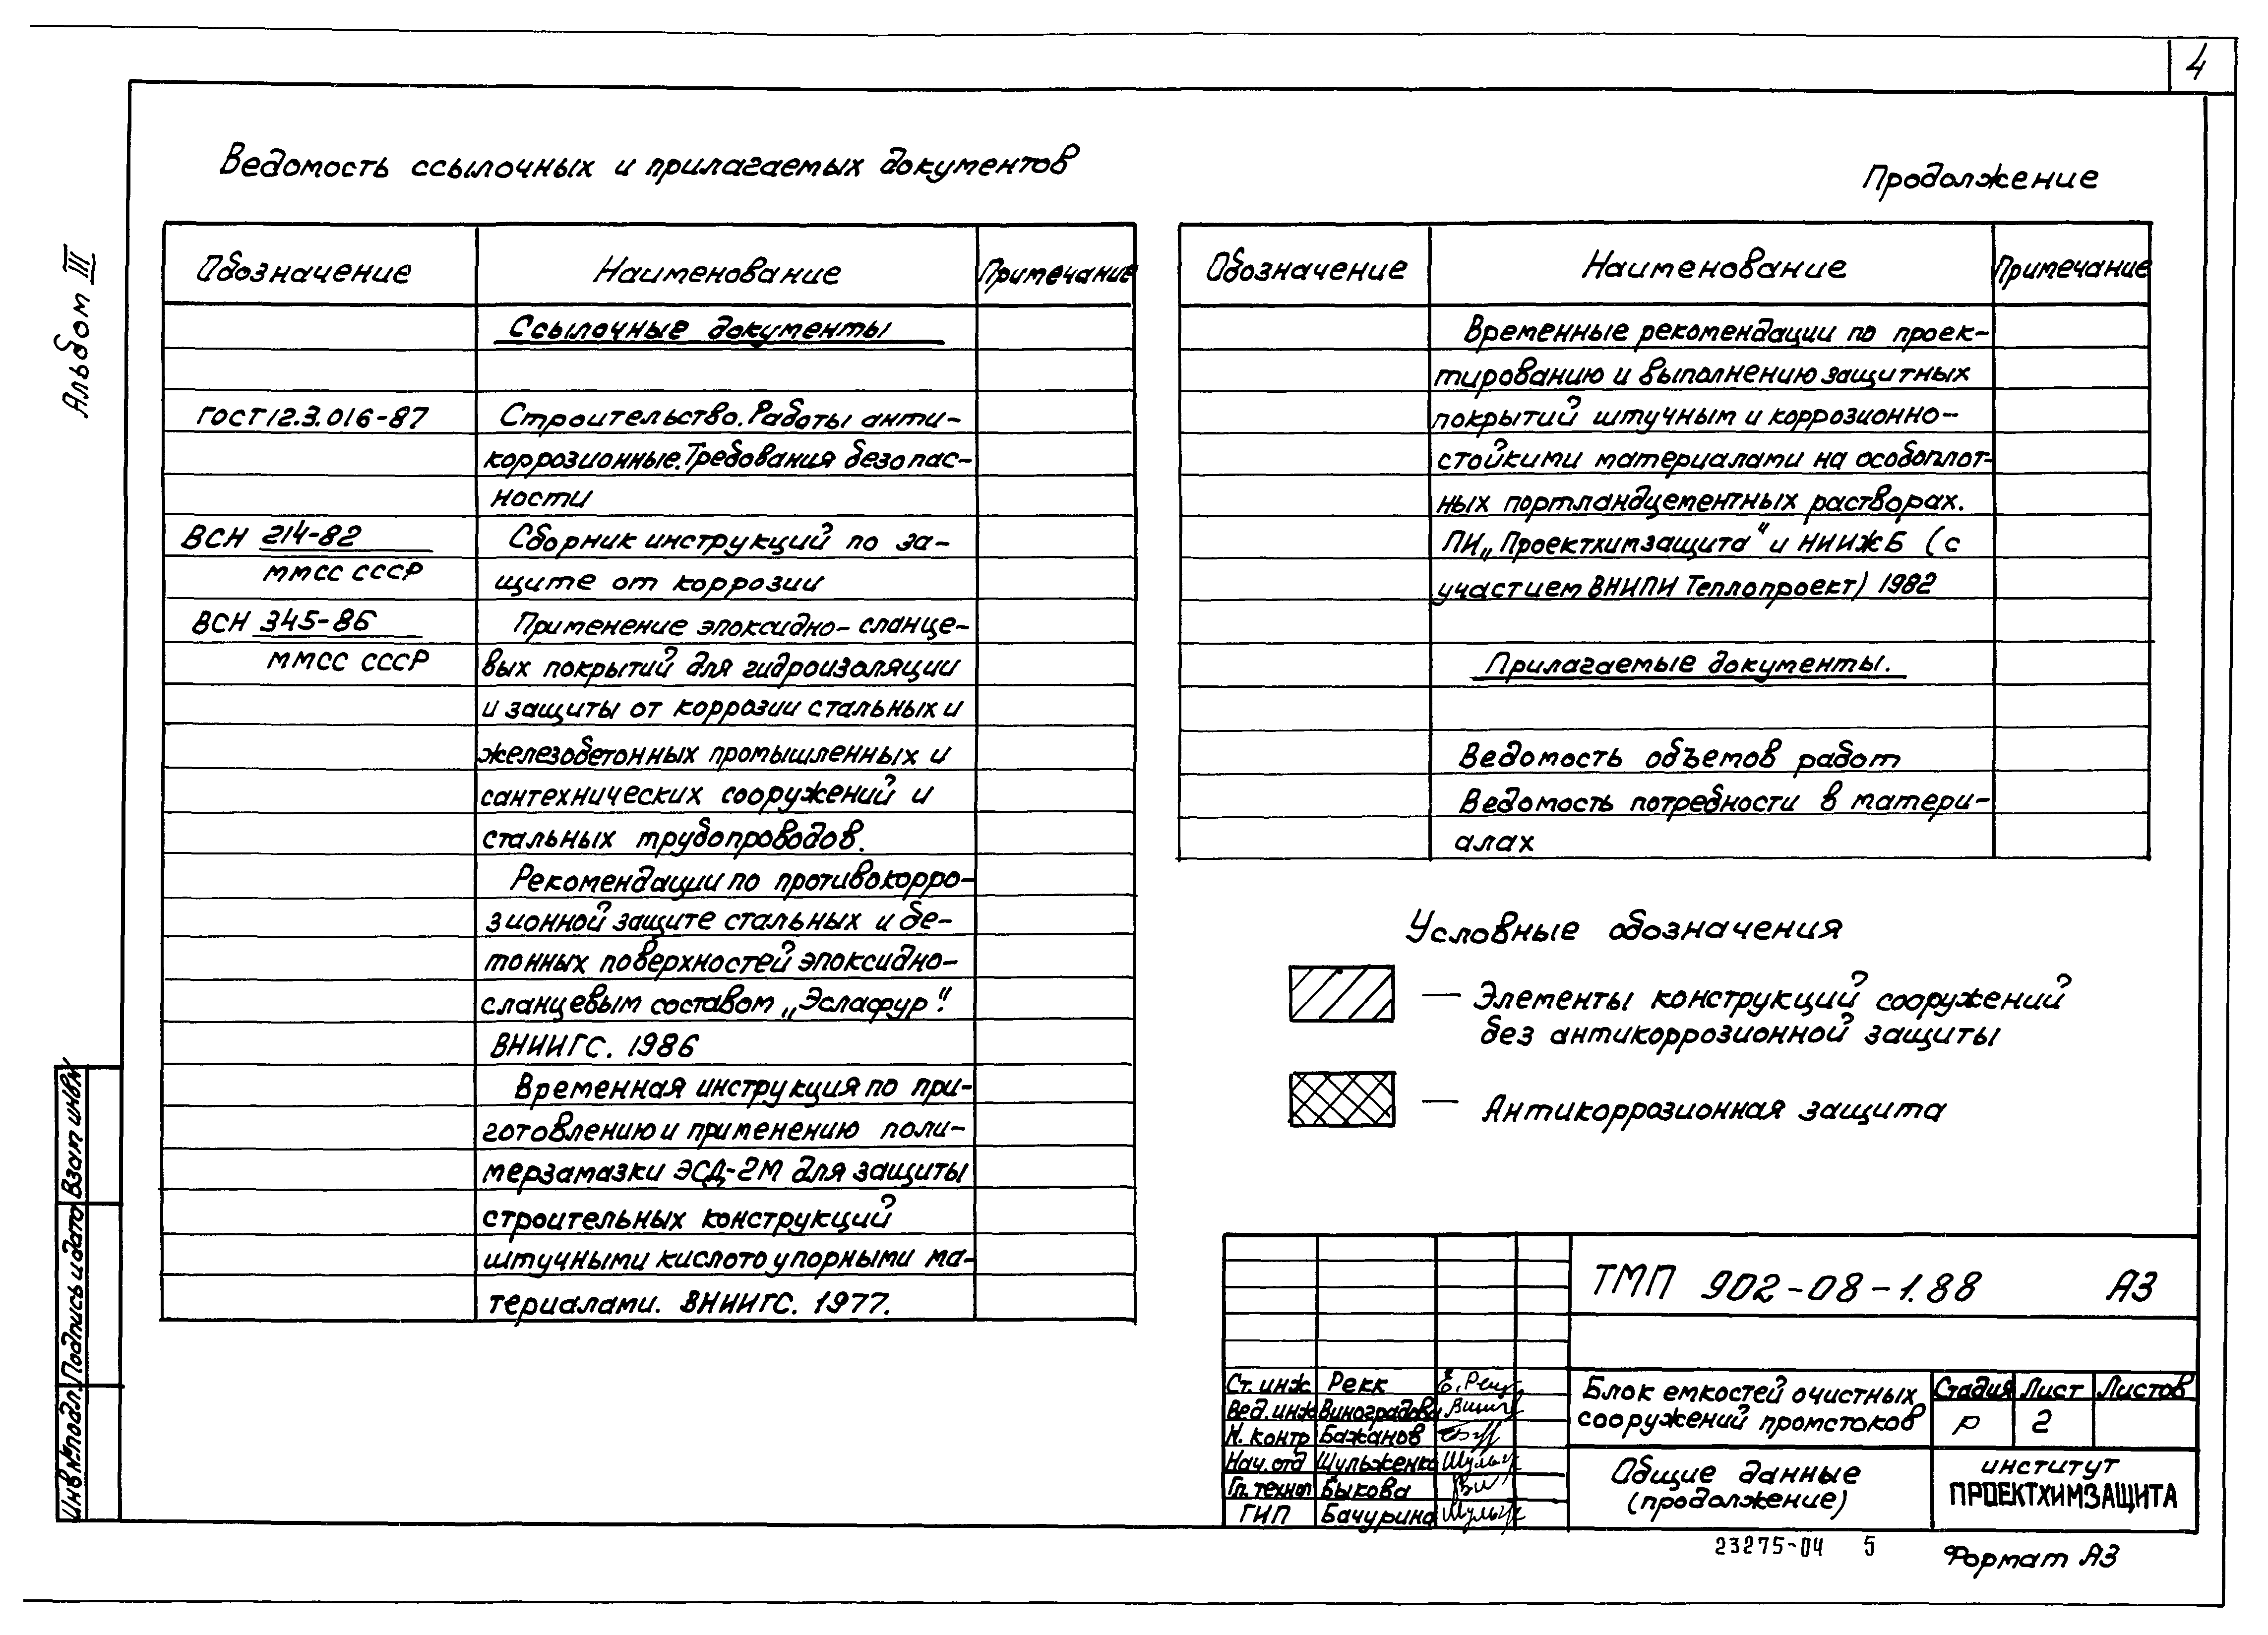 4
Альбом III
Ведомость ссылочных и прилагаемых документов
Обозначение Наименование Примечание
Ссылочные документы
ГОСТ 12.3.016-87 Строительство. Работы анти-
коррозионные. Требования безопас-
ности
ВСН 214-82 Сборник инструкций по за-
ММСС СССР щите от коррозии
ВСН 345-86 Применение эпоксидно-сланце-
ММСС СССР вых покрытий для гидроизоляции
и защиты от коррозии стальных и
железобетонных промышленных и
сантехнических сооружений и
стальных трубопроводов.
Рекомендации по противокорро-
зионной защите стальных и бе-
тонных поверхностей эпоксидно-
сланцевым составом „Эслафур".
ВНИИГС. 1986
Временная инструкция по при-
готовлению и применению поли-
мерзамазки ЭСД-2М для защиты
строительных конструкций
штучными кислотоупорными ма-
териалами. ВНИИГС. 1977.
Продолжение
Обозначение Наименование Примечание
Временные рекомендации по проек-
тированию и выполнению защитных
покрытий штучным и коррозионно-
стойкими материалами на особоплот-
ных портландцементных растворах.
ПИ „Проектхимзащита" и НИИЖБ (с
участием ВНИПИ Теплопроект) 1982
Прилагаемые документы.
Ведомость объемов работ
Ведомость потребности в матери-
алах
Условные обозначения
— Элементы конструкций сооружений
без антикоррозионной защиты
— Антикоррозионная защита
ТМП 902-08-1.88 АЗ
Ст. инж Рекк
Вед. инж Виноградова
Н. контр Бажанов
Нач. отд Шульженко
Гл. технол Быкова
ГИП Бачурина
Блок емкостей очистных
сооружений промстоков
Стадия Лист Листов
Р 2
Общие данные
(продолжение)
институт
ПРОЕКТХИМЗАЩИТА
23275-04 5
Формат А3
Инв № подл. Подпись и дата Взам инв№